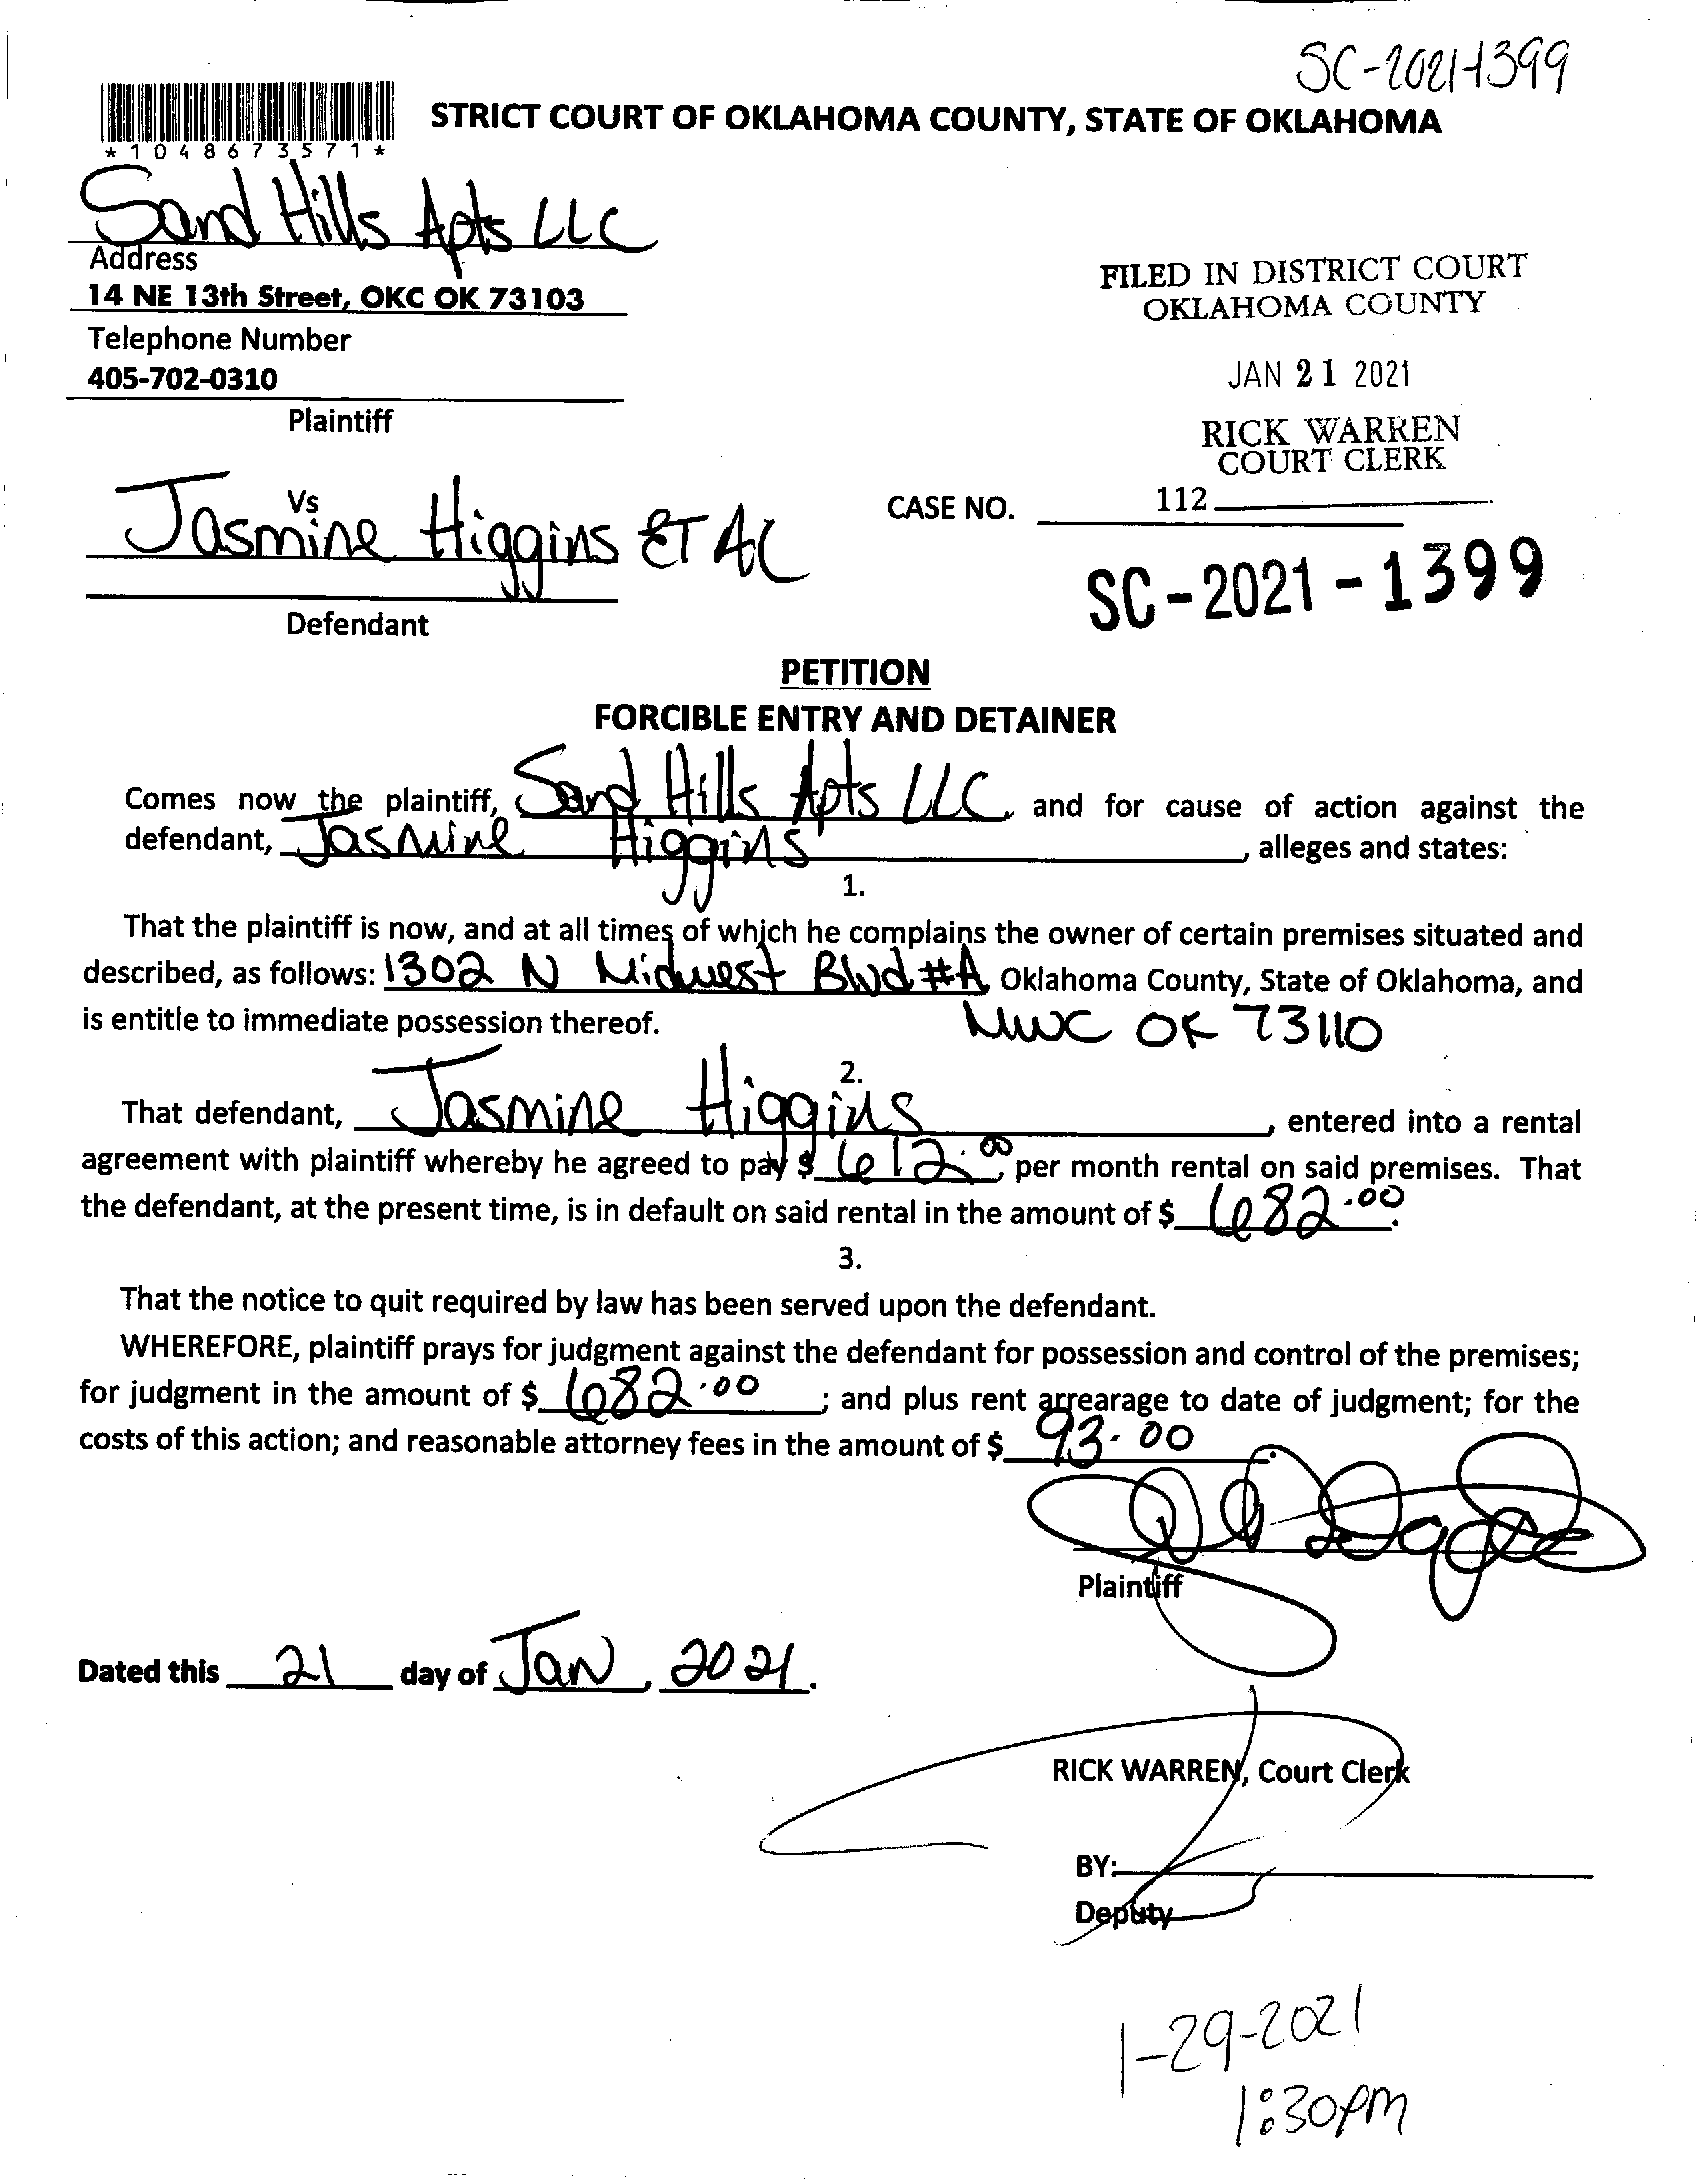 SC-2021-1399
*1048673571*
STRICT COURT OF OKLAHOMA COUNTY, STATE OF OKLAHOMA
Sand Hills Apts LLC
Address
14 NE 13th Street, OKC OK 73103
Telephone Number
405-702-0310
Plaintiff
FILED IN DISTRICT COURT
OKLAHOMA COUNTY
JAN 21 2021
RICK WARREN
COURT CLERK
112
Vs
Jasmine Higgins ET AL
Defendant
CASE NO.
SC-2021-1399
PETITION
FORCIBLE ENTRY AND DETAINER
Comes now the plaintiff, Sand Hills Apts LLC, and for cause of action against the
defendant, Jasmine Higgins, alleges and states:
1.
That the plaintiff is now, and at all times of which he complains the owner of certain premises situated and
described, as follows: 1302 N Midwest Blvd #A Oklahoma County, State of Oklahoma, and
is entitle to immediate possession thereof. MWC OK 73110
2.
That defendant, Jasmine Higgins, entered into a rental
agreement with plaintiff whereby he agreed to pay $ 612.00, per month rental on said premises. That
the defendant, at the present time, is in default on said rental in the amount of $ 682.00.
3.
That the notice to quit required by law has been served upon the defendant.
WHEREFORE, plaintiff prays for judgment against the defendant for possession and control of the premises;
for judgment in the amount of $ 682.00 ; and plus rent arrearage to date of judgment; for the
costs of this action; and reasonable attorney fees in the amount of $ 93.00.
Plaintiff
Dated this 21 day of Jan, 2021.
RICK WARREN, Court Clerk
BY:
Deputy
1-29-2021
1:30pm